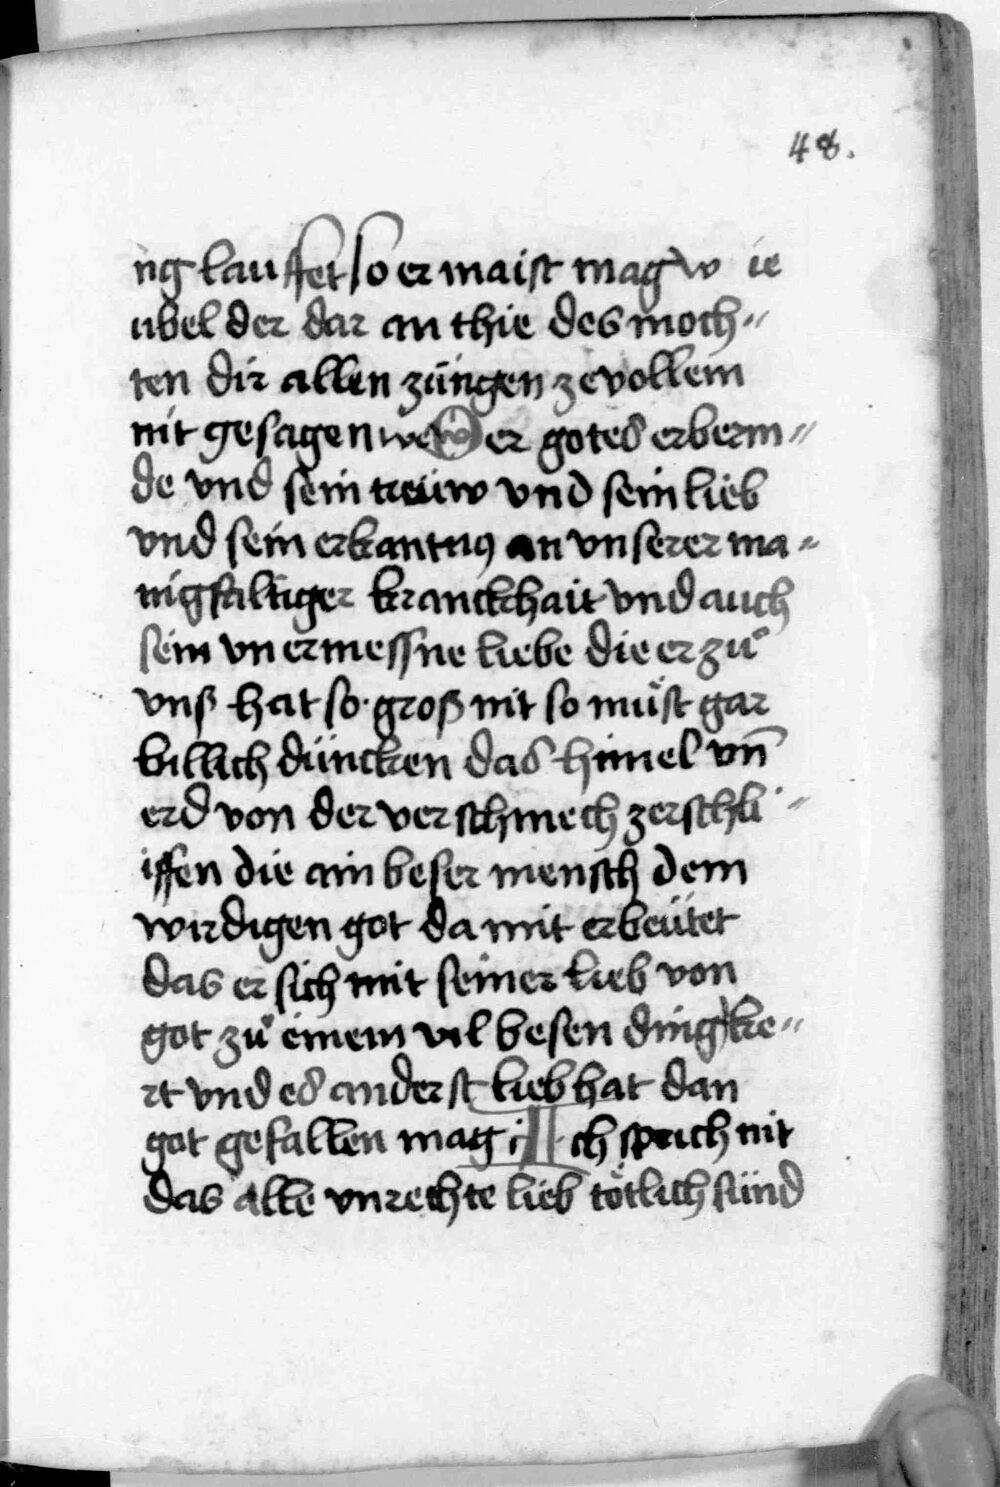 48.
ng lauffet so er maist mag w ie
ubel der dar an thie des moch〃
ten dir allen züngen zevollem
nit gesagen wew er gotes erberm〃
de vnd sein treüw vnd sein lieb
vnd sein erkantnus an vnserer ma〃
nigfaltiger kranckhait vnd auch
sein vnermessne liebe die er zuͦ
vnß hat so groß nit so muͤst gar
billich düncken das himel vn̄
erd von der verschmech zerschli〃
iffen die ain beser mensch dem
wirdigen got da mit erbeütet
das er sich mit seiner lieb von
got zuͦ einem vil besen ding ke〃
rt vnd es anderst lieb hat dan
got gefallen mag I ch sprich nit
das alle vnrechte lieb toͤtlich sünd